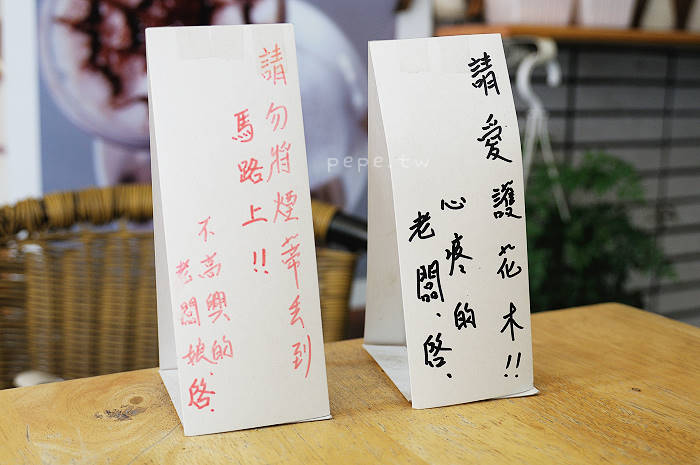 請勿將煙蒂丟到
馬路上!!
不高興的
老闆娘.啓.
請愛護花木!!
心疼的
老闆.啓.
pepe.tw